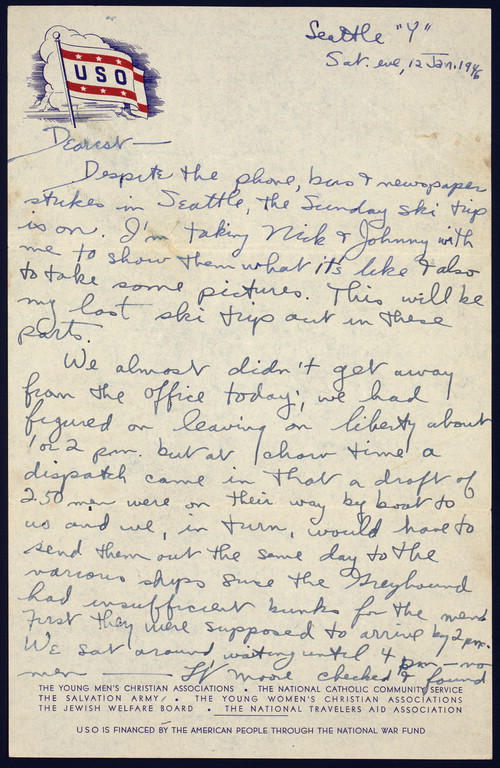 Seattle "Y"
Sat. eve, 12 Jan. 1946
USO
Dearest—
Despite the phone, bus & newspaper
strikes in Seattle, the Sunday ski trip
is on. I'm taking Nick & Johnny with
me to show them what it's like & also
to take some pictures. This will be
my last ski trip out in these
parts.
We almost didn't get away
from the office today; we had
figured on leaving on liberty about
1 or 2 pm. but at chow time a
dispatch came in that a draft of
250 men were on their way by boat to
us and we, in turn, would have to
send them out the same day to the
various ships since the Greyhound
had insufficient bunks for the men.
First they were supposed to arrive by 2 pm.
We sat around waiting until 4 pm — no
men — Lt Moore checked & found
THE YOUNG MEN'S CHRISTIAN ASSOCIATIONS • THE NATIONAL CATHOLIC COMMUNITY SERVICE
THE SALVATION ARMY • THE YOUNG WOMEN'S CHRISTIAN ASSOCIATIONS
THE JEWISH WELFARE BOARD • THE NATIONAL TRAVELERS AID ASSOCIATION
USO IS FINANCED BY THE AMERICAN PEOPLE THROUGH THE NATIONAL WAR FUND